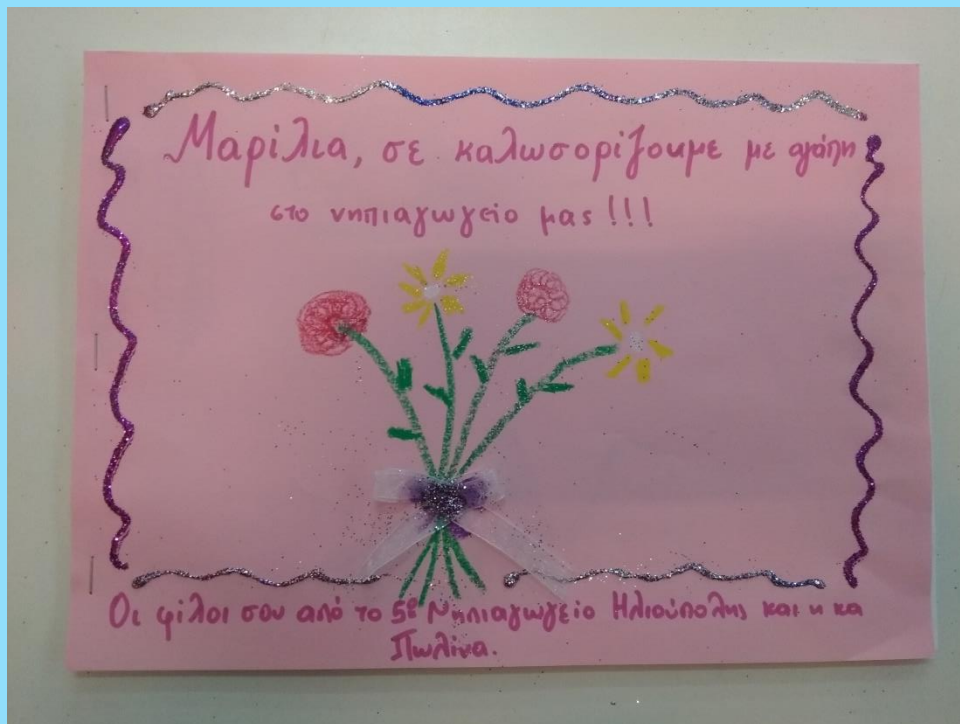 Μαρίλια, σε καλωσορίζουμε με αγάπη
στο νηπιαγωγείο μας!!!
Οι φίλοι σου από το 5º Νηπιαγωγείο Ηλιούπολης και η κα
Πωλίνα.